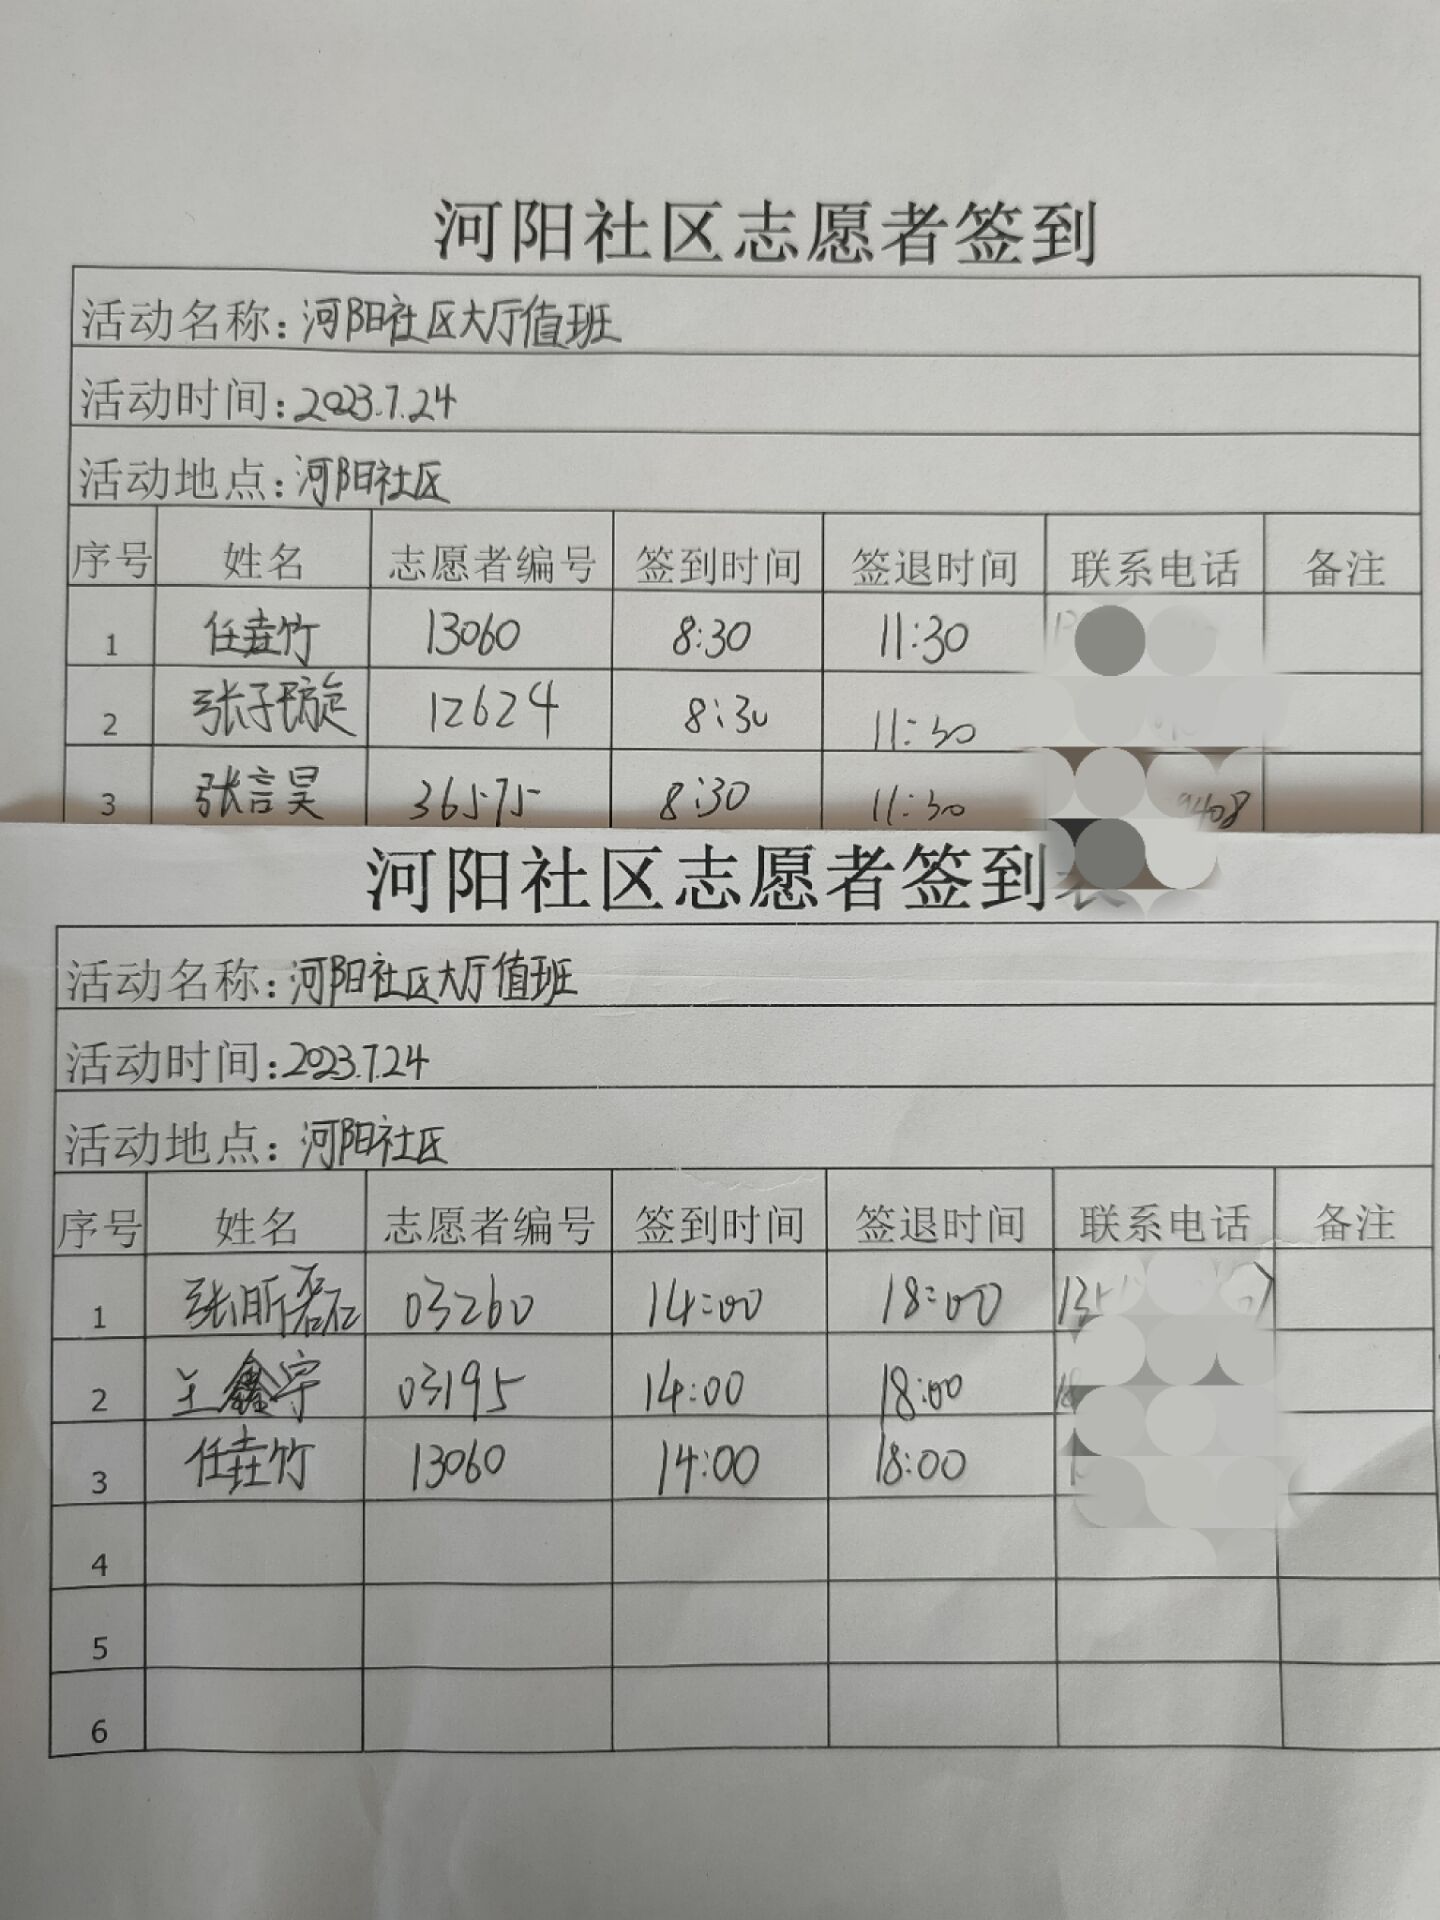 河阳社区志愿者签到
活动名称:河阳社区大厅值班
活动时间:2023.7.24
活动地点:河阳社区
序号 姓名 志愿者编号 签到时间 签退时间 联系电话 备注
1 任垚竹 13060 8:30 11:30
2 张子璇 12624 8:30 11:30
3 张言昊 36575 8:30 11:30 9408
河阳社区志愿者签到表
活动名称:河阳社区大厅值班
活动时间:2023.7.24
活动地点:河阳社区
序号 姓名 志愿者编号 签到时间 签退时间 联系电话 备注
1 03260 14:00 18:00
2 王鑫宇 03195 14:00 18:00
3 任垚竹 13060 14:00 18:00
4
5
6